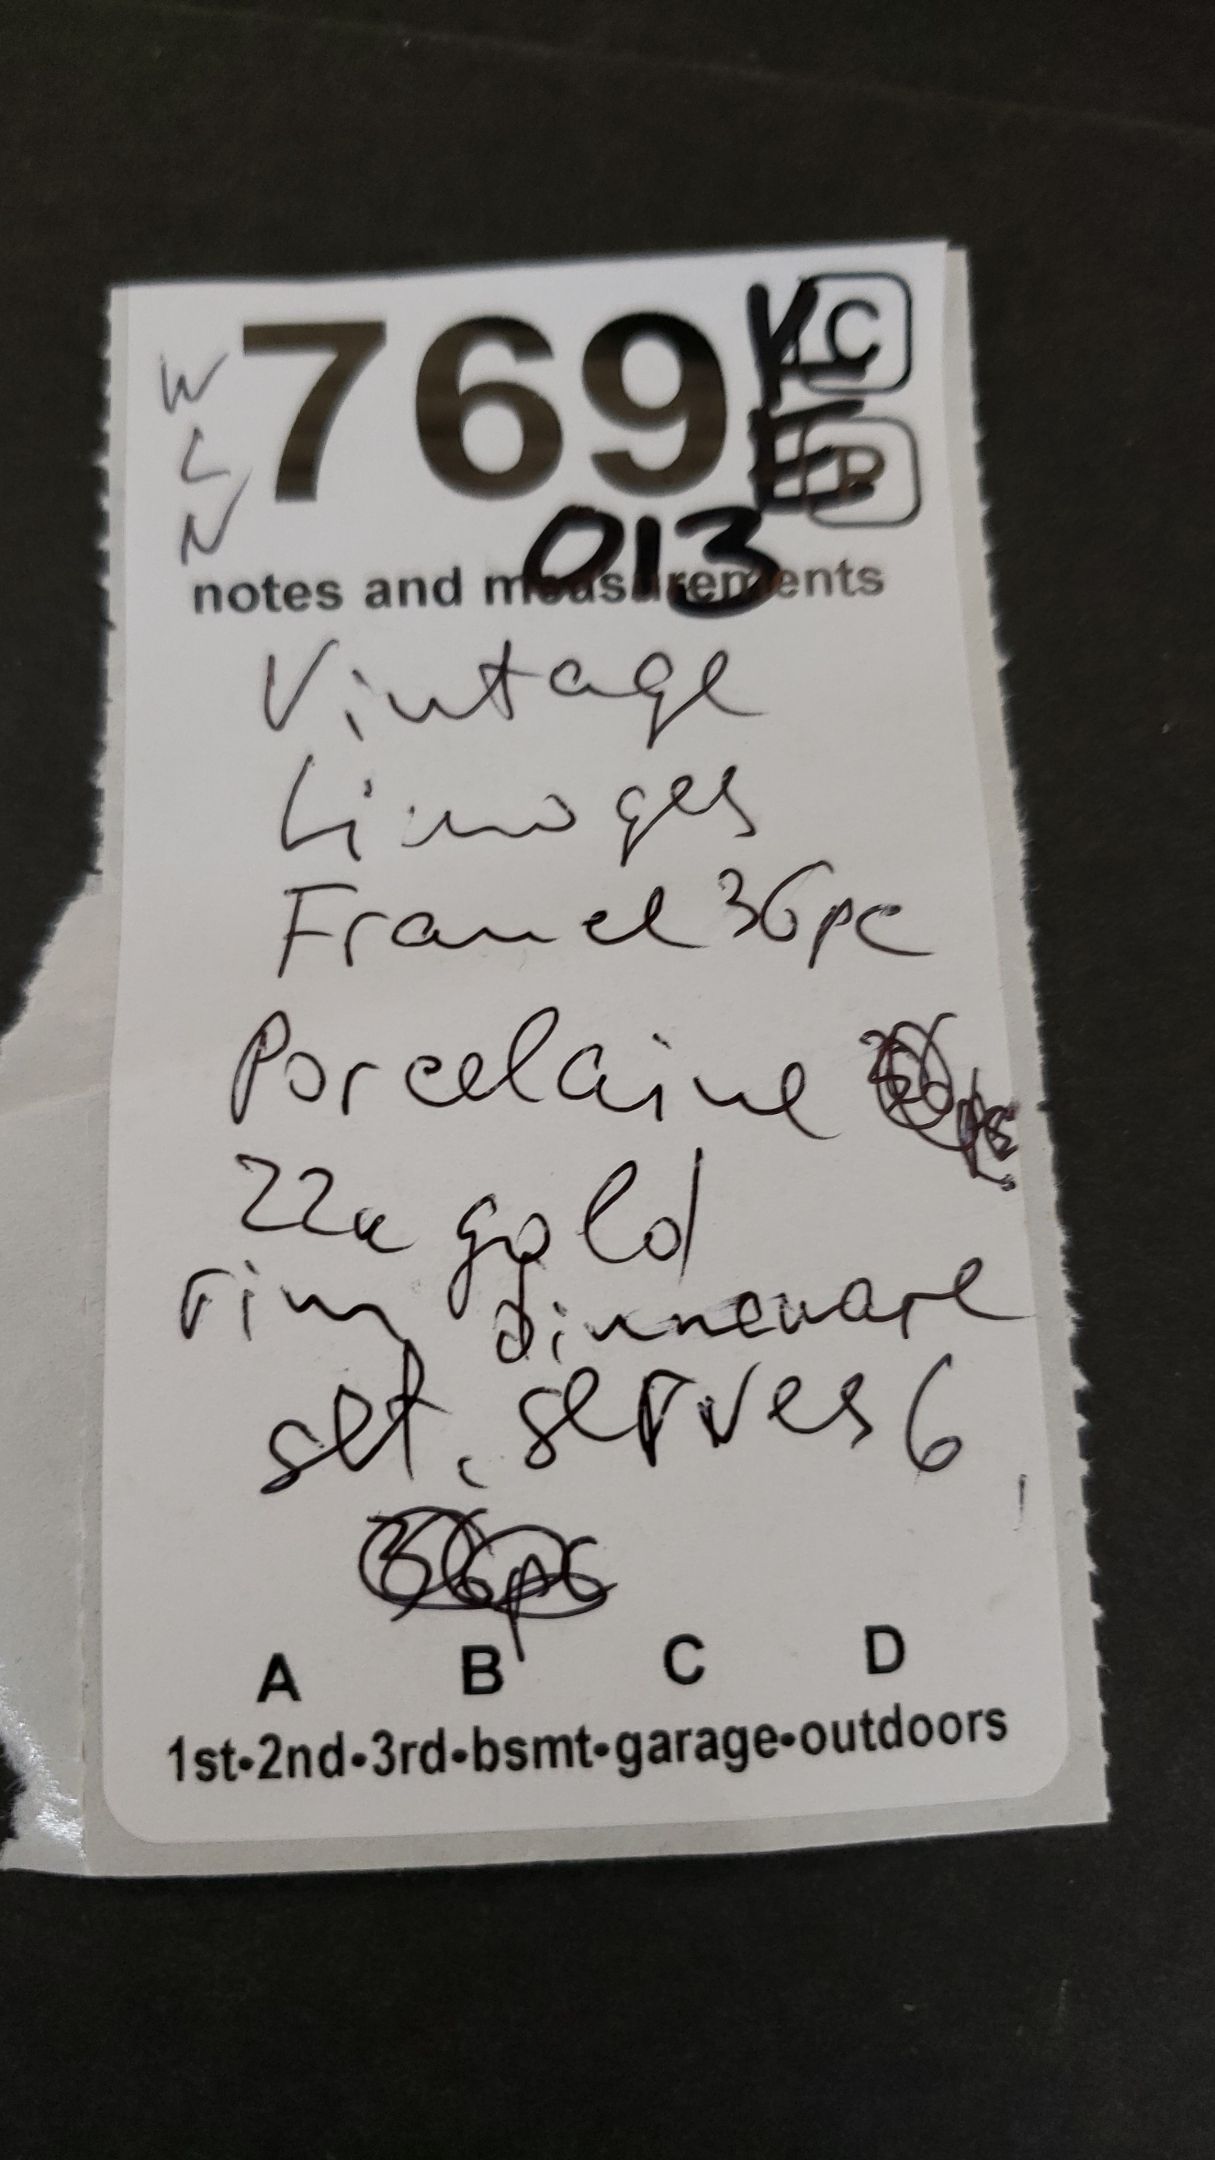 W
L
N
769
C
P
013
notes and measurements
Vintage
Limoges
France 36pc
Porcelaine
22k gold
rim dinneware
set. serves 6
36pc
A B C D
1st•2nd•3rd•bsmt•garage•outdoors